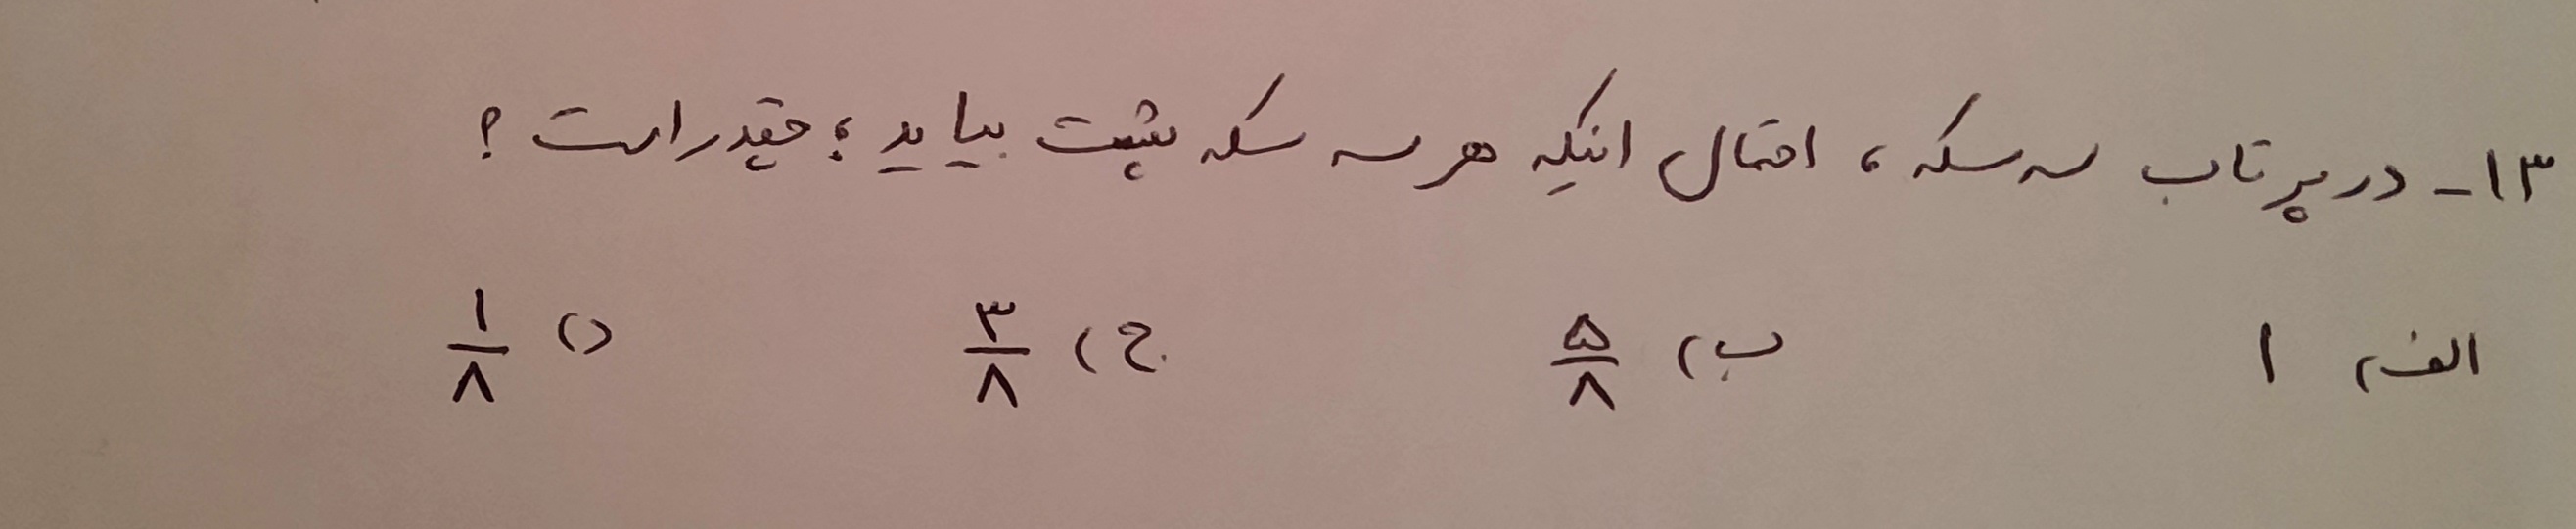 ۱۳- در پرتاب سه سکه، احتمال اینکه هر سه سکه پشت بیاید؛ چقدر است؟
الف) ۱ ب) ۵/۸ ج) ۳/۸ د) ۱/۸